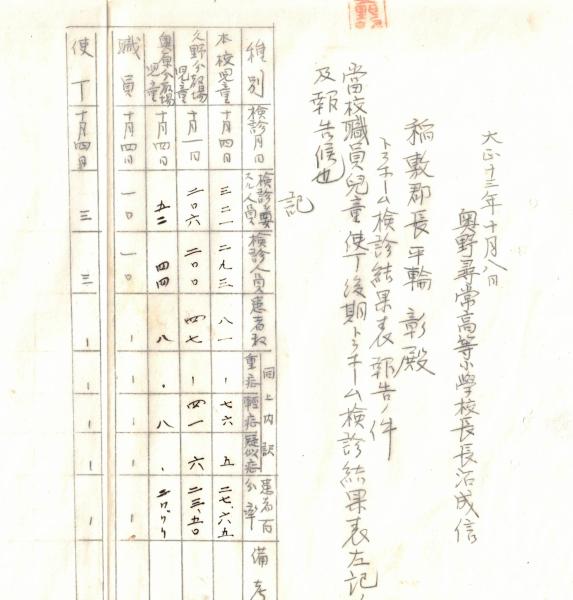 大正十三年十月八日
奥野尋常高等小学校長長沼成信
稲敷郡長平輪彰殿
トラホーム検診結果表報告ノ件
當校職員児童使丁後期トラホーム検診結果表左記ノ
及報告候也
記
種別 検診月日 検診ヲ要スル人員 検診人員 患者数 同上内訳 重症 軽症 疑似症 患者百分率 備考
本校児童 十月四日 三二一 二九三 八一 、 七六 五 二七、六五
久野分教場児童 十月一日 二〇六 二〇〇 四七 、 四一 六 二三、五〇
奥原分教場児童 十月四日 五二 四四 八 、 八 、
職員 十月四日 一〇 一〇 、 、 、 、 、
使丁 十月四日 三 三 、 、 、 、 、